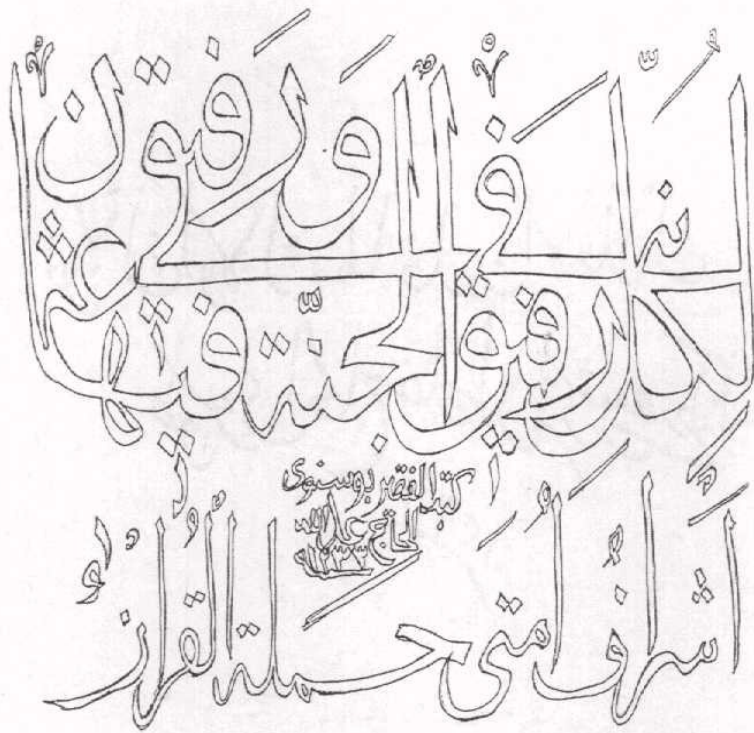 لكل نبى رفيق فى الجنة ورفيقى فيها عثمان
كتبه الفقير بوسنوى
الحاج عبد الله
اشراف امتى حملة القران